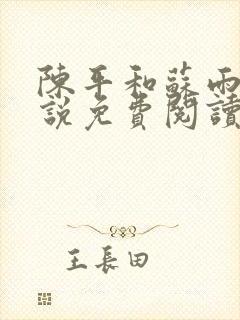 陳平和蘇雨
說免費閱讀
王長田